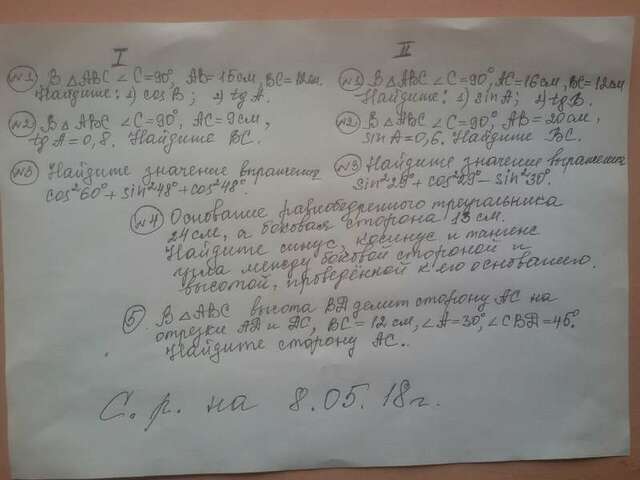 I
№1 В △ ABC ∠C=90°, AB=15см, BC=12см.
Найдите: 1) cos B; 2) tg A.
№2 В △ ABC ∠C=90°, AC=9см,
tg A=0,8. Найдите BC.
№3 Найдите значение выражения
cos²60°+sin²48°+cos²48°.
II
№1 В △ ABC ∠C=90°, AC=16см, BC=12см
Найдите: 1) sin A; 2) tg B.
№2 В △ ABC ∠C=90°, AB=20см,
sin A=0,6. Найдите BC.
№3 Найдите значение выражения
sin²29°+cos²29°-sin²30°.
№4 Основание равнобедренного треугольника
24см, а боковая сторона 13см.
Найдите синус, косинус и тангенс
угла между боковой стороной и
высотой, проведённой к его основанию.
5 В △ ABC высота BД делит сторону AC на
отрезки AД и ДC, BC=12см, ∠A=30°, ∠CBД=45°.
Найдите сторону AC.
С. р. на 8.05.18г.